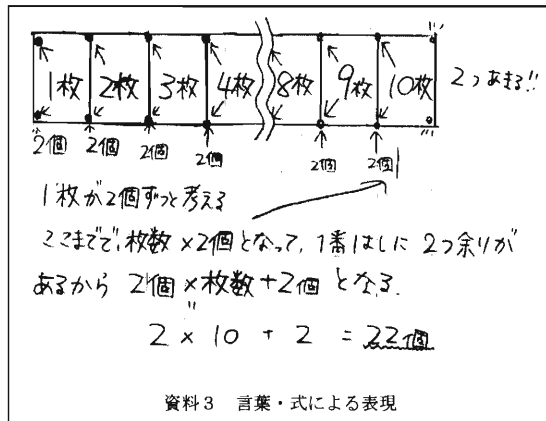 1枚 2枚 3枚 4枚 8枚 9枚 10枚 2つあまる!!
2個 2個 2個 2個 2個 2個
1枚が2個ずつと考える
ここまでで、枚数×2個となって、1番はしに2つ余りが
あるから 2個×枚数+2個 となる.
2 × 10 + 2 = 22個
資料3 言葉・式による表現